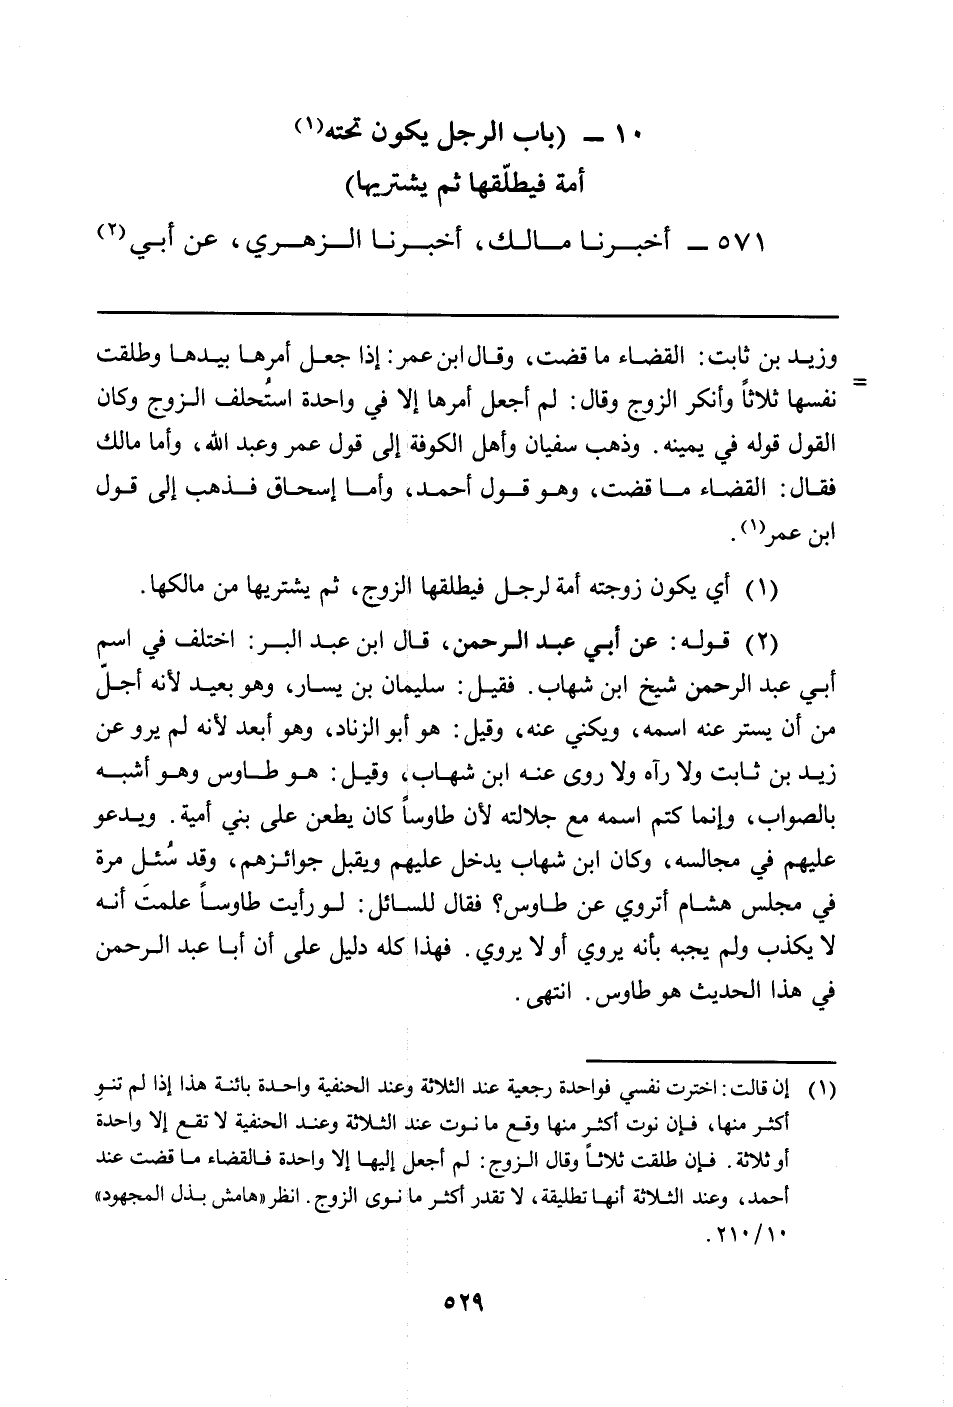 ١٠ ــ (باب الرجل يكون تحته(١)
أمة فيطلّقها ثم يشتريها)
٥٧١ ــ أخبرنا مالك، أخبرنا الزهري، عن أبي(٢)
وزيد بن ثابت: القضاء ما قضت، وقال ابن عمر: إذا جعل أمرها بيدها وطلقت
=
نفسها ثلاثاً وأنكر الزوج وقال: لم أجعل أمرها إلا في واحدة استُحلف الزوج وكان
القول قوله في يمينه. وذهب سفيان وأهل الكوفة إلى قول عمر وعبد الله، وأما مالك
فقال: القضاء ما قضت، وهو قول أحمد، وأما إسحاق فذهب إلى قول
ابن عمر(١).
(١) أي يكون زوجته أمة لرجل فيطلقها الزوج، ثم يشتريها من مالكها.
(٢) قوله: عن أبي عبد الرحمن، قال ابن عبد البر: اختلف في اسم
أبي عبد الرحمن شيخ ابن شهاب. فقيل: سليمان بن يسار، وهو بعيد لأنه أجلّ
من أن يستر عنه اسمه، ويكني عنه، وقيل: هو أبو الزناد، وهو أبعد لأنه لم يرو عن
زيد بن ثابت ولا رآه ولا روى عنه ابن شهاب، وقيل: هو طاوس وهو أشبه
بالصواب، وإنما كتم اسمه مع جلالته لأن طاوساً كان يطعن على بني أمية. ويدعو
عليهم في مجالسه، وكان ابن شهاب يدخل عليهم ويقبل جوائزهم، وقد سُئل مرة
في مجلس هشام أتروي عن طاوس؟ فقال للسائل: لو رأيت طاوساً علمتَ أنه
لا يكذب ولم يجبه بأنه يروي أو لا يروي. فهذا كله دليل على أن أبا عبد الرحمن
في هذا الحديث هو طاوس. انتهى.
(١) إن قالت: اخترت نفسي فواحدة رجعية عند الثلاثة وعند الحنفية واحدة بائنة هذا إذا لم تنوِ
أكثر منها، فإن نوت أكثر منها وقع ما نوت عند الثلاثة وعند الحنفية لا تقع إلا واحدة
أو ثلاثة. فإن طلقت ثلاثاً وقال الزوج: لم أجعل إليها إلا واحدة فالقضاء ما قضت عند
أحمد، وعند الثلاثة أنها تطليقة، لا تقدر أكثر ما نوى الزوج. انظر «هامش بذل المجهود»
٢١٠/١٠.
٥٢٩